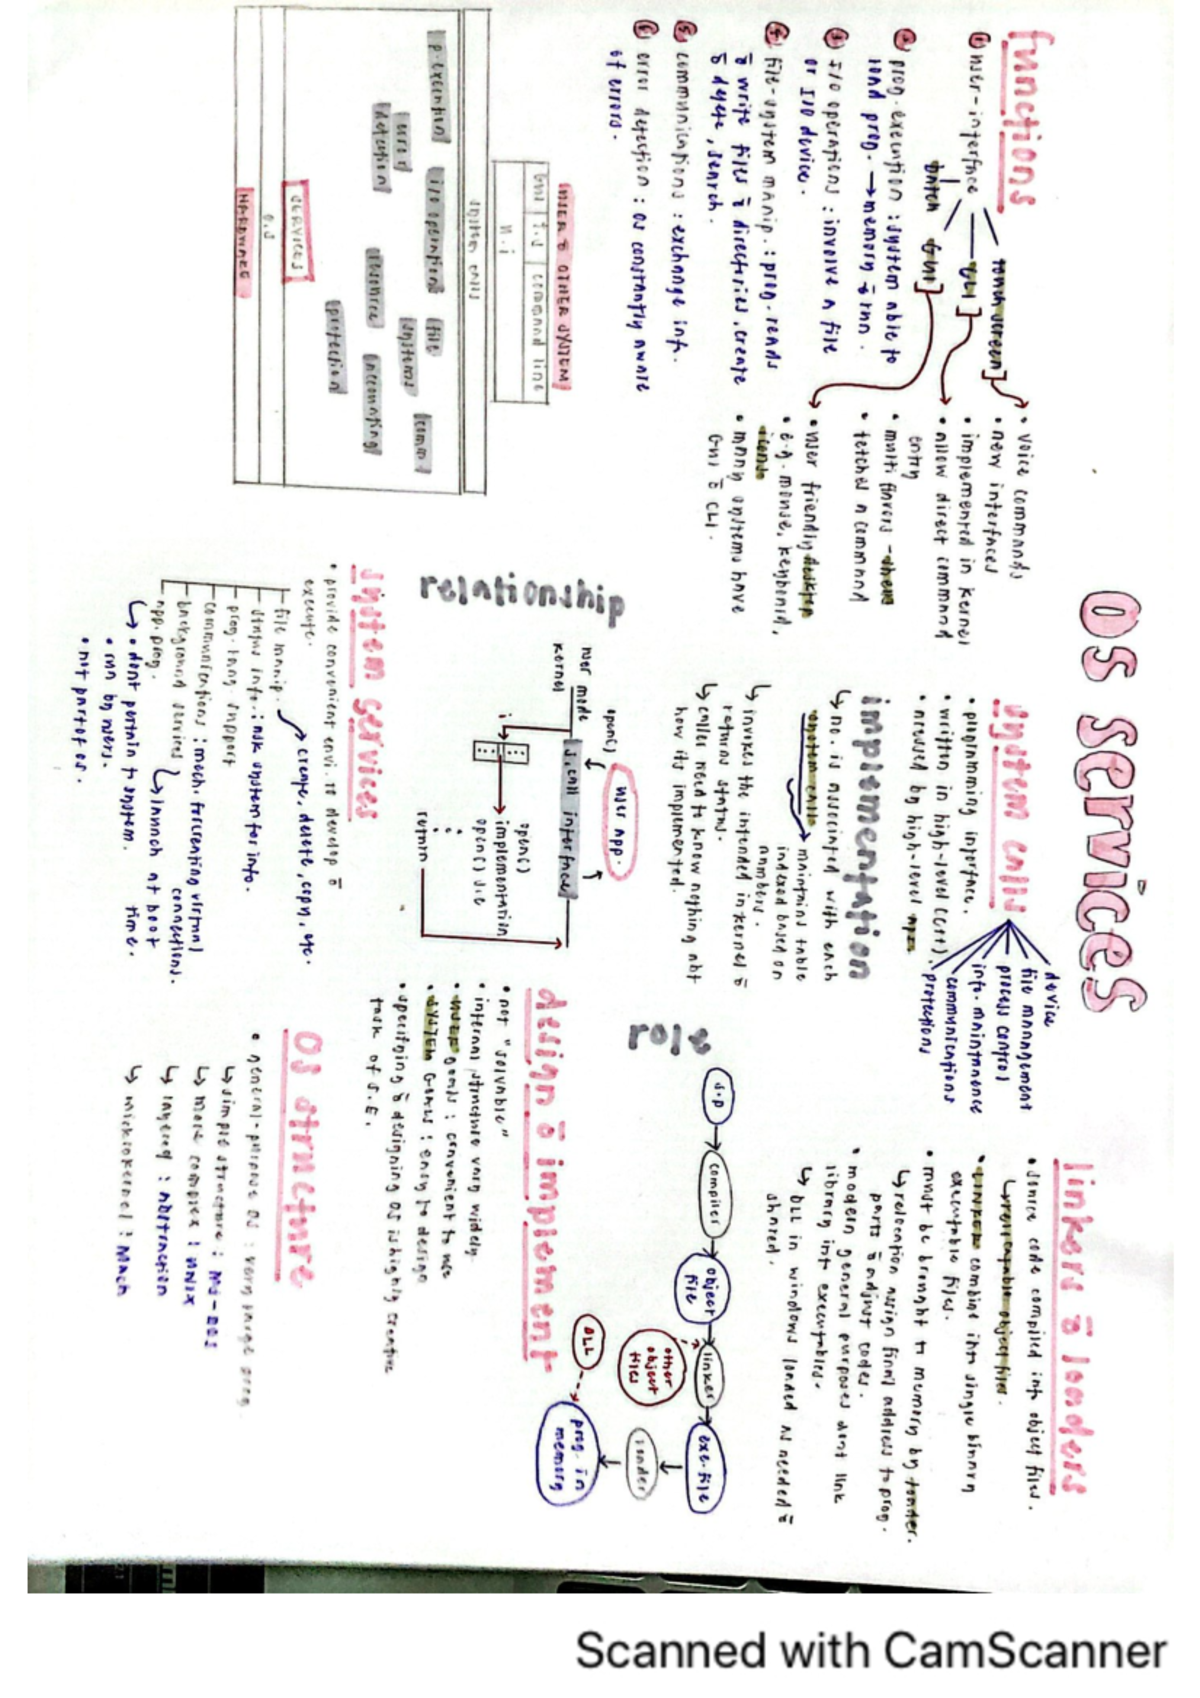 OS SERVICES
functions
① user-interface
touch screen
CLI
GUI
batch
• voice commands
• new interfaces
• implemented in kernel
• allow direct command
entry
• multi flavors - shells
• fetches a command
• user friendly desktop
• e.g. mouse, keyboard,
icons
• many systems have
GUI & CLI.
② prog. execution : system able to
load prog. → memory & run.
③ I/O operations : involve a file
or I/O device.
④ file-system manip. : prog. reads
& write files & directories, create
& delete, search.
⑤ communications : exchange info.
⑥ error detection : OS constantly aware
of errors.
USER & OTHER SYSTEM
GUI | t.s | command line
U.I
system calls
p. execution
i/o operation
file
systems
comm
error
detection
resource
accounting
protection
SERVICES
O.S
HARDWARE
system calls
• programming interface.
• written in high-level (C++).
• accessed by high-level apps
device
file management
process control
info. maintnance
communications
protections
implementation
↳ no. is associated with each
system calls
→ maintains table
indexed based on
numbers.
↳ invokes the intended in kernel &
returns status.
↳ caller need to know nothing abt
how its implemented.
relationship
user app.
open()
user mode
kernel
s. call interface
i
open()
implementation
open() s.c
return
system services
• provide convenient envi. to develop &
execute.
file manip. → create, delete, copy, etc.
status info. : ask system for info.
prog. lang. support
communications : mech. for creating virtual
connections.
background services ↳ launch at boot
time.
app. prog.
↳ • dont pertain to system.
• run by users.
• not part of os.
linkers & loaders
• source code compiled into object files.
↳ relocatable object files.
• linkers combine into single binary
executable files.
• must be brought to memory by loader.
↳ relocation assign final address to prog.
parts & adjust codes.
• modern general purposes dont link
library into executables.
↳ DLL in windows loaded as needed &
shared.
role
s.p
compiler
object
file
linker
exe. file
other
object
files
loader
DLL
prog. in
memory
design & implement
• not "solvable"
• internal structure vary widely
• USER goals : convenient to use
• SYSTEM GOALS : easy to design
• specifying & designing OS is highly creative
task of S.E.
OS structure
• general-purpose OS : very large prog.
↳ simple structure : MS-DOS
↳ more complex : UNIX
↳ layered : abstraction
↳ microkernel : Mach
Scanned with CamScanner